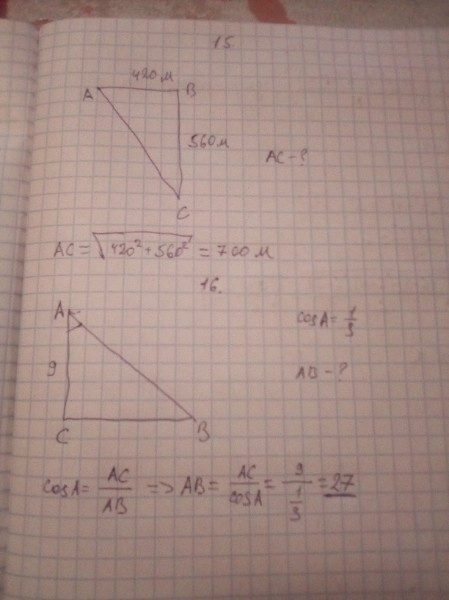 15.
420м
A B
560м
AC - ?
C
AC = √420² + 560² = 700 м
16.
A
cosA = 1/3
9
AB - ?
C B
cosA = AC/AB => AB = AC/cosA = 9/(1/3) = 27